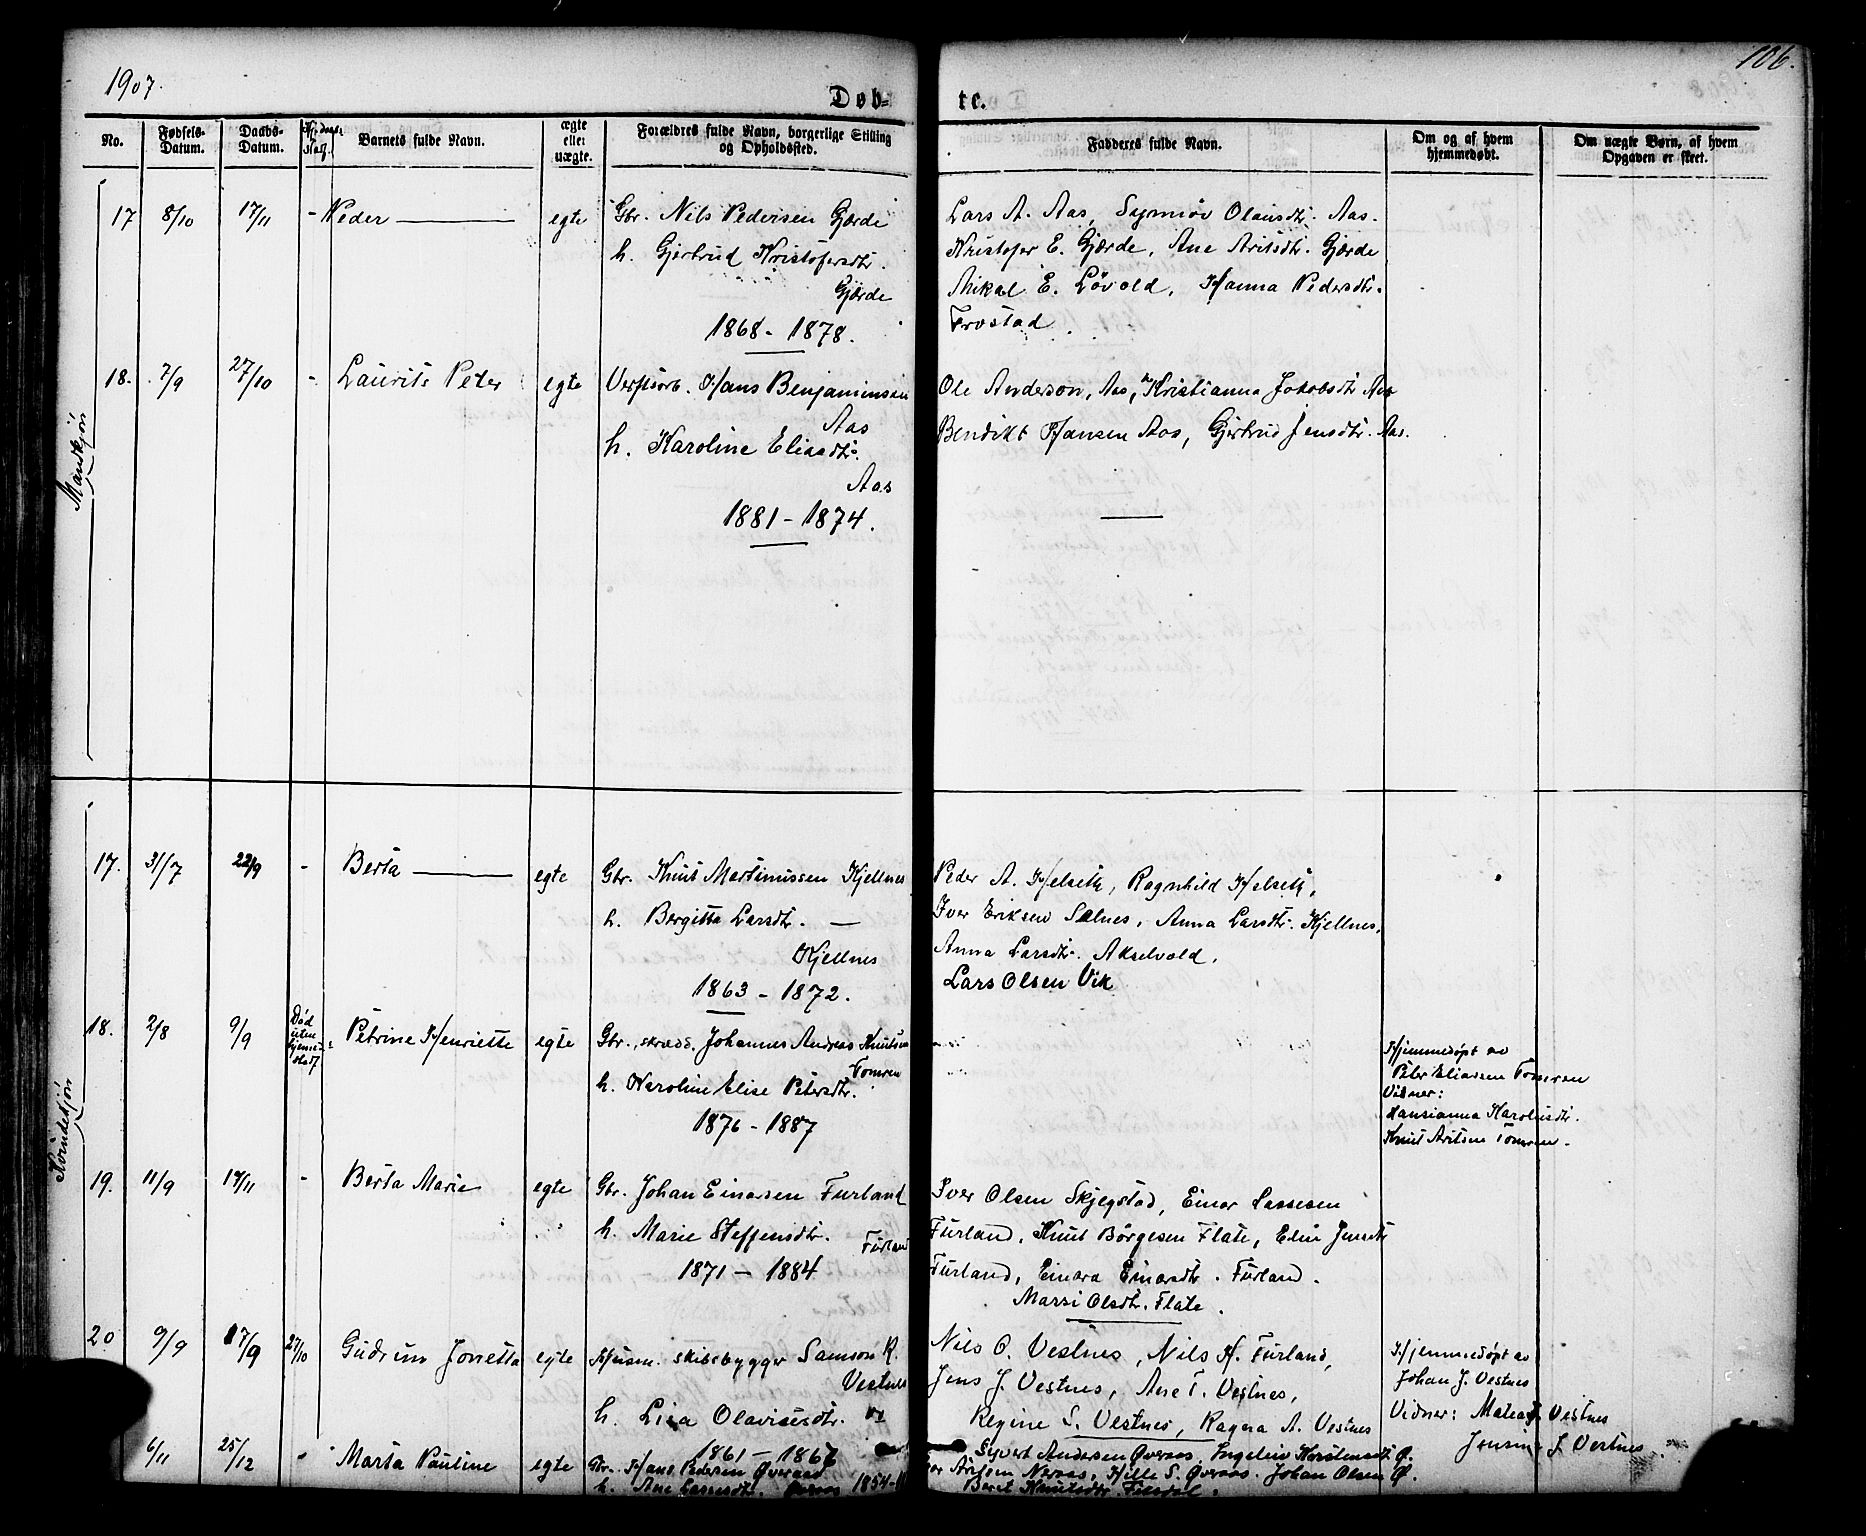 1907.
106.
Døb-
te.
No.
Fødsels-Datum.
Daabs-Datum.
Barnets fulde Navn.
ægte eller uægte.
Forældres fulde Navn, borgerlige Stilling og Opholdssted.
Fadderes fulde Navn.
Om og af hvem hjemmedøbt.
Om uægte Børn, af hvem Opgaven er skeet.
Mandkjøn
17 8/10 17/11 - Peder egte Gbr. Nils Pedersen Gjærde
h. Gjertrud Kristofersdtr.
Gjærde
1868 - 1878.
Lars A. Aas, Synnøv Olausdtr. Aas.
Kristofer E. Gjærde, Ane Aritsdtr. Gjærde
Mikal E. Løvold, Hanna Pedersdtr.
Frostad
18. 7/9 27/10 - Laurits Peter egte Verftsarb. Hans Benjaminsen
Aas
h. Karoline Eliasdtr.
Aas
1881 - 1874.
Ole Anderson, Aas, Kristianna Jakobsdtr Aas
Bendikt Hansen Aas, Gjertrud Jensdtr. Aas.
Kvindekjøn
17. 31/7 22/9 - Berta egte Gbr. Knut Martinussen Kjellnes
h. Bergitta Larsdtr. —
Kjellnes
1863 - 1872.
Peder A. Helseth, Ragnhild Helseth,
Iver Eriksen Salnes, Anna Larsdtr. Kjellnes,
Anna Larsdtr. Akselvold,
Lars Olsen Vik
18. 2/8 9/9 Død uten hjemsted Petrine Henriette egte Gbr., skræd. Johannes Andreas Knutsen
Tomren
h. Karoline Elise Petersdtr.
1876 - 1887
Hjemmedøpt av
Peter Eliassen Tomren
Vidner:
Hansianna Karolusdtr.
Knut Aritsen Tomren.
19. 11/9 17/11 - Berta Marie egte Gbr. Johan Einarsen Furland
h. Marie Steffensdtr.
Furland
1871 - 1884
Iver Olsen Skjegstad, Einar Lassesen
Furland, Knut Børgesen Flate, Elin Jensdtr
Furland, Einara Einarsdtr. Furland.
Massi Olsdtr. Flate.
20 9/9 17/9 27/10 Gudrun Jonetta egte Husm. skibsbygger Samson K.
Vestnes
h. Lisa Olavisesdtr.
1861 - 1867
Nils O. Vestnes, Nils H. Furland,
Jens J. Vestnes, Ane T. Vestnes,
Regine S. Vestnes, Ragna A. Vestnes
Hjemmedøpt av
Johan J. Vestnes
Vidner: Mateas J. Vestnes
Jensine J. Vestnes
6/11 25/12 Marta Pauline egte Gbr. Hans Pedersen Øveraas
h. Ane Lassesdtr. 1854-
Syvert Andersen Øveraas
Hille S. Øveraas. Johan Olsen Ø.
Berit Knutsdtr.